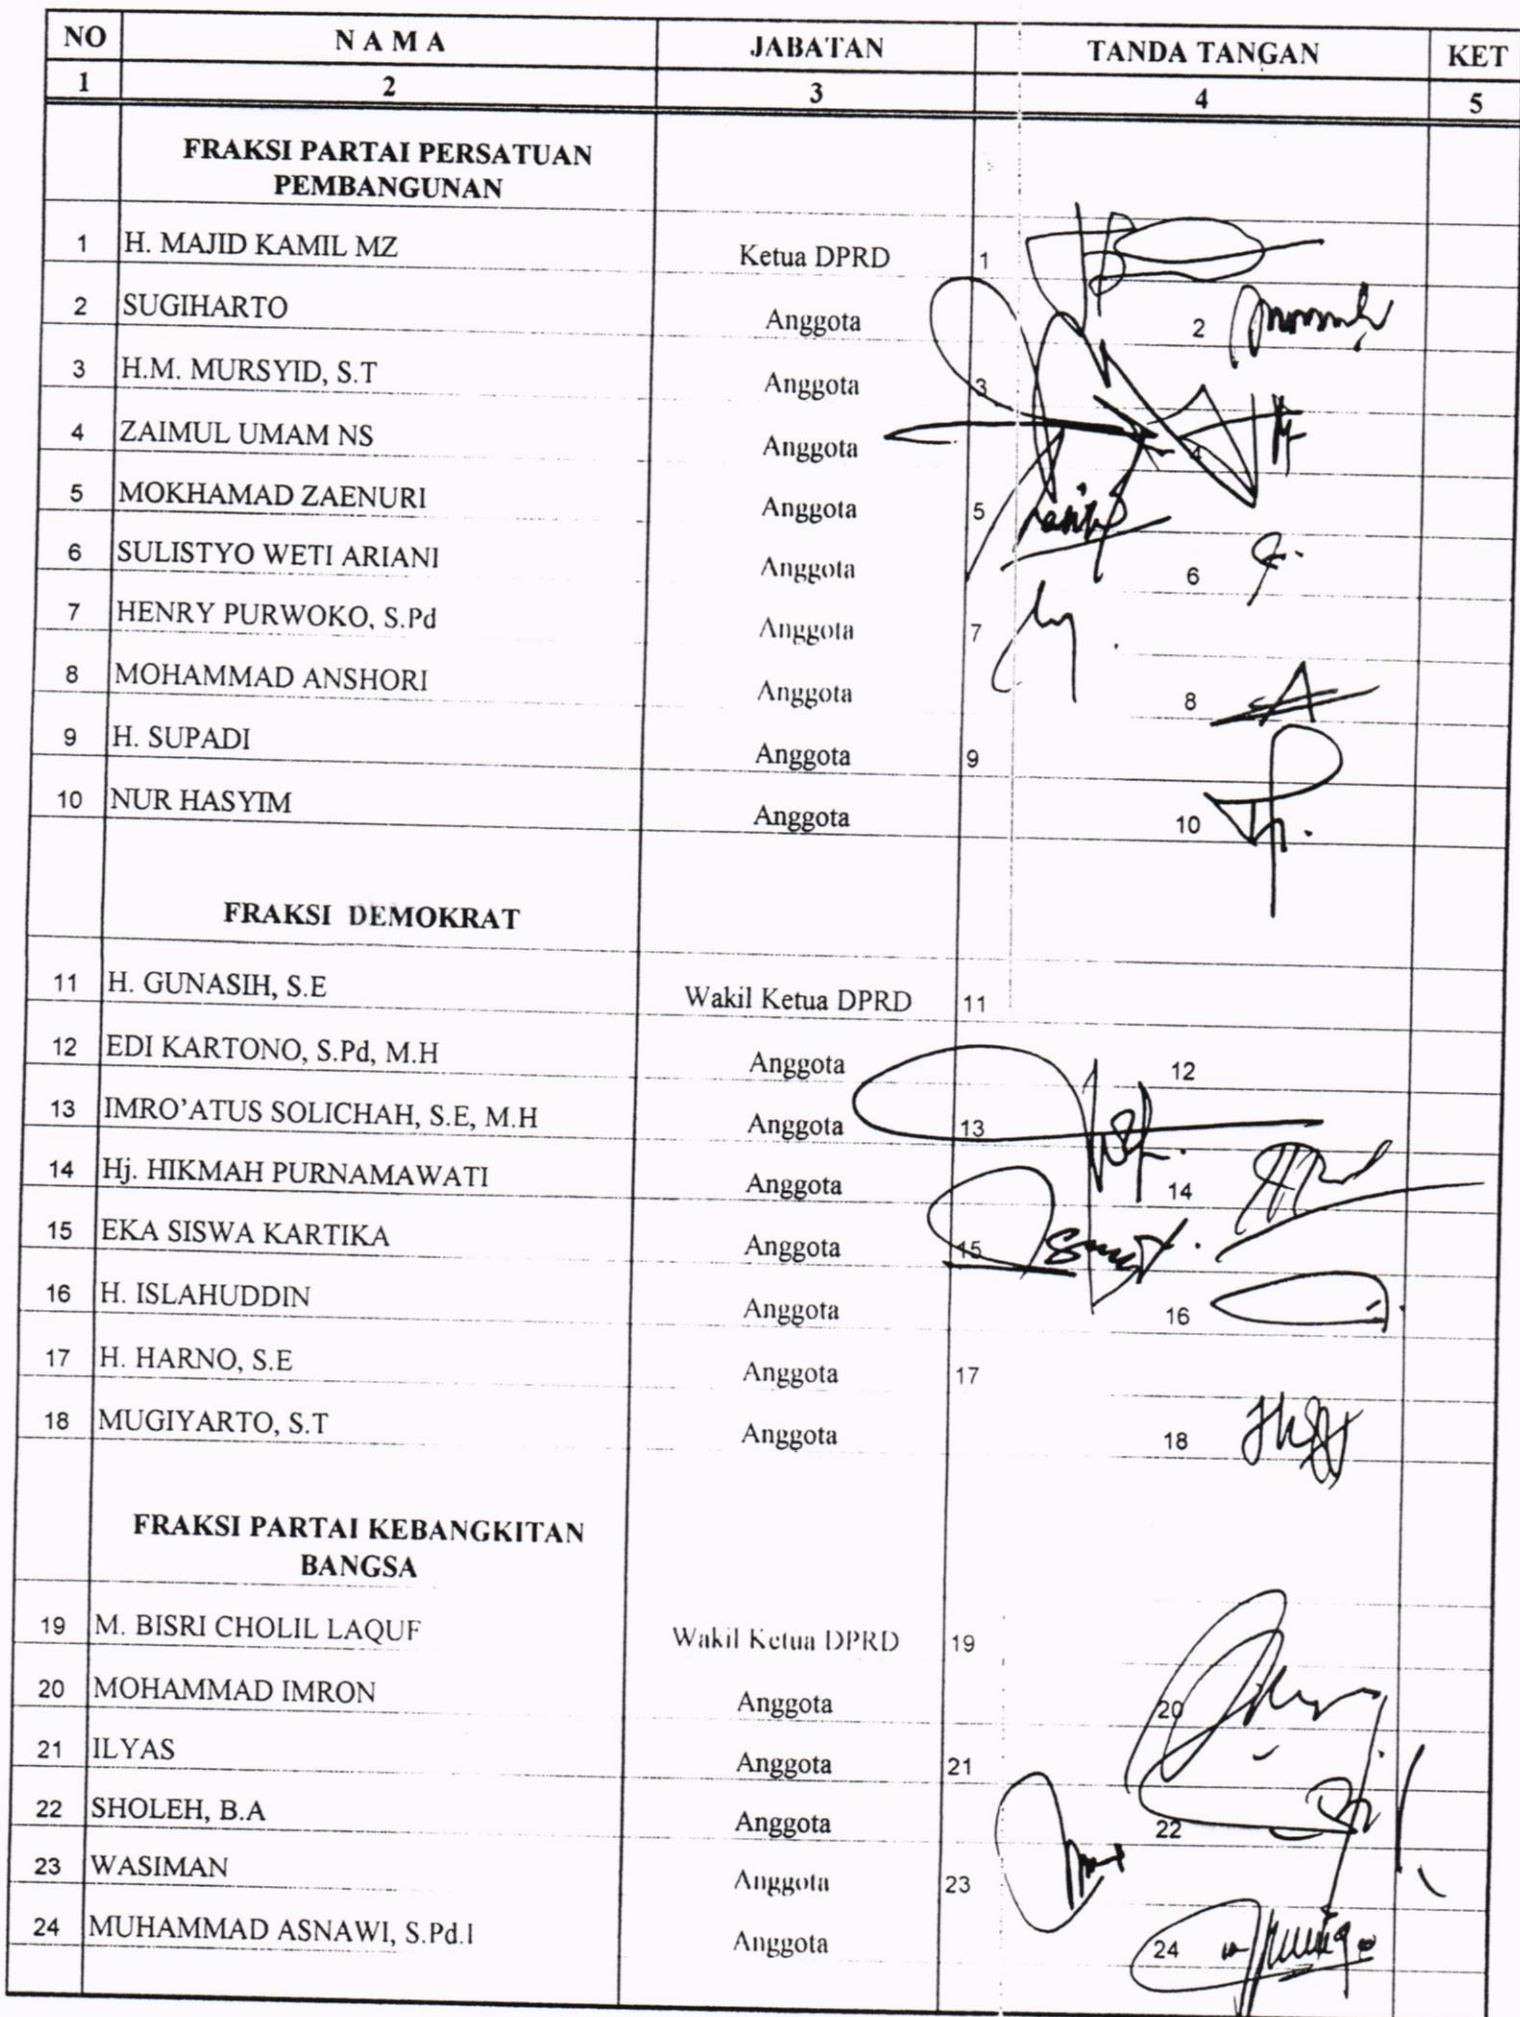 NO N A M A JABATAN TANDA TANGAN KET
1 2 3 4 5
FRAKSI PARTAI PERSATUAN
PEMBANGUNAN
1 H. MAJID KAMIL MZ Ketua DPRD 1
2 SUGIHARTO Anggota 2
3 H.M. MURSYID, S.T Anggota 3
4 ZAIMUL UMAM NS Anggota 4
5 MOKHAMAD ZAENURI Anggota 5
6 SULISTYO WETI ARIANI Anggota 6
7 HENRY PURWOKO, S.Pd Anggota 7
8 MOHAMMAD ANSHORI Anggota 8
9 H. SUPADI Anggota 9
10 NUR HASYIM Anggota 10
FRAKSI DEMOKRAT
11 H. GUNASIH, S.E Wakil Ketua DPRD 11
12 EDI KARTONO, S.Pd, M.H Anggota 12
13 IMRO’ATUS SOLICHAH, S.E, M.H Anggota 13
14 Hj. HIKMAH PURNAMAWATI Anggota 14
15 EKA SISWA KARTIKA Anggota 15
16 H. ISLAHUDDIN Anggota 16
17 H. HARNO, S.E Anggota 17
18 MUGIYARTO, S.T Anggota 18
FRAKSI PARTAI KEBANGKITAN
BANGSA
19 M. BISRI CHOLIL LAQUF Wakil Ketua DPRD 19
20 MOHAMMAD IMRON Anggota 20
21 ILYAS Anggota 21
22 SHOLEH, B.A Anggota 22
23 WASIMAN Anggota 23
24 MUHAMMAD ASNAWI, S.Pd.I Anggota 24